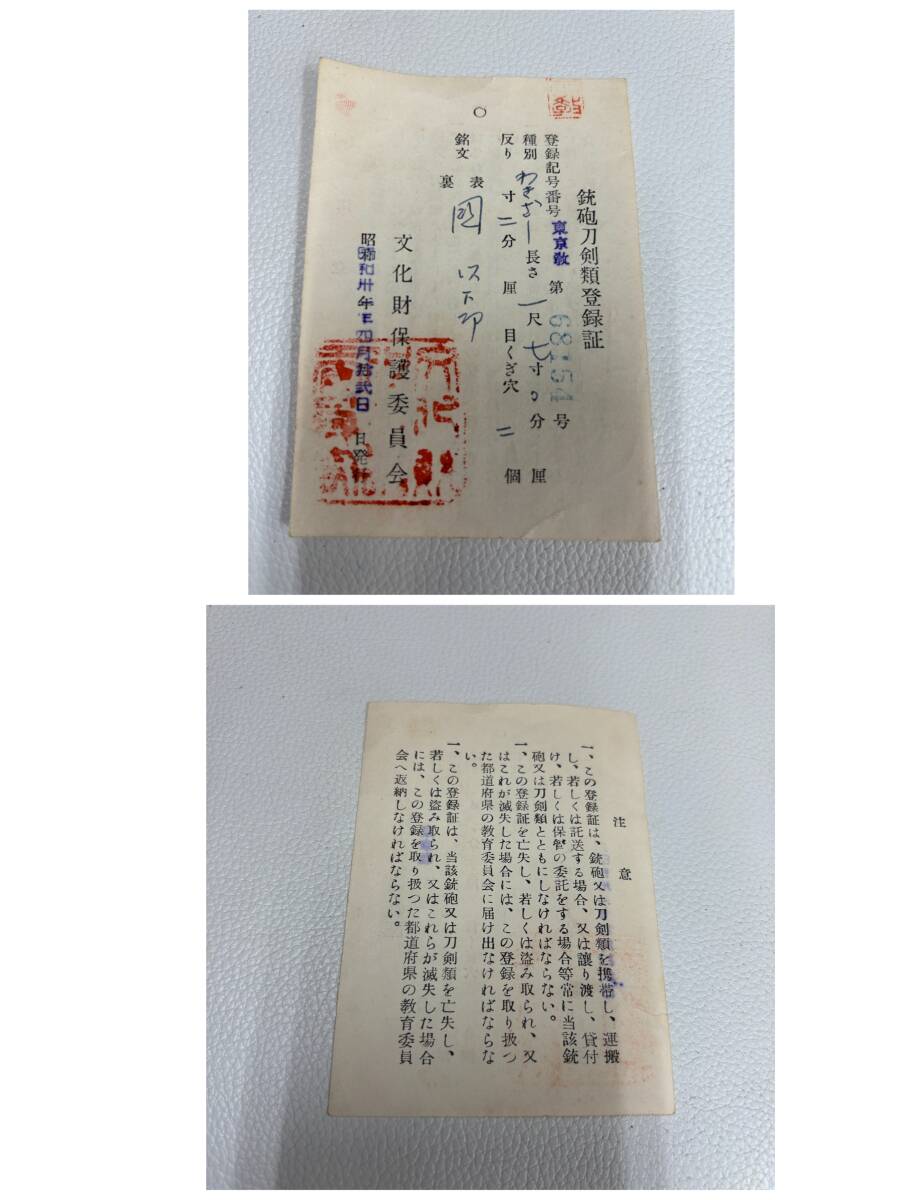 銃砲刀剣類登録証
登録記号番号 東京教 第 68154 号
種別 わきざし 長さ 一尺七寸〇分 厘
反り 寸二分 厘 目くぎ穴 二 個
銘文 表 國 以下切
裏
文化財保護委員会
昭和卅年四月拾弐日 日発行
注意
一、この登録証は、銃砲又は刀剣類を携帯し、運搬
し、若しくは託送する場合、又は譲り渡し、貸付
け、若しくは保管の委託をする場合等常に当該銃
砲又は刀剣類とともにしなければならない。
一、この登録証を亡失し、若しくは盗み取られ、又
はこれが滅失した場合には、この登録を取り扱つ
た都道府県の教育委員会に届け出なければならな
い。
一、この登録証は、当該銃砲又は刀剣類を亡失し、
若しくは盗み取られ、又はこれらが滅失した場合
には、この登録を取り扱つた都道府県の教育委員
会へ返納しなければならない。